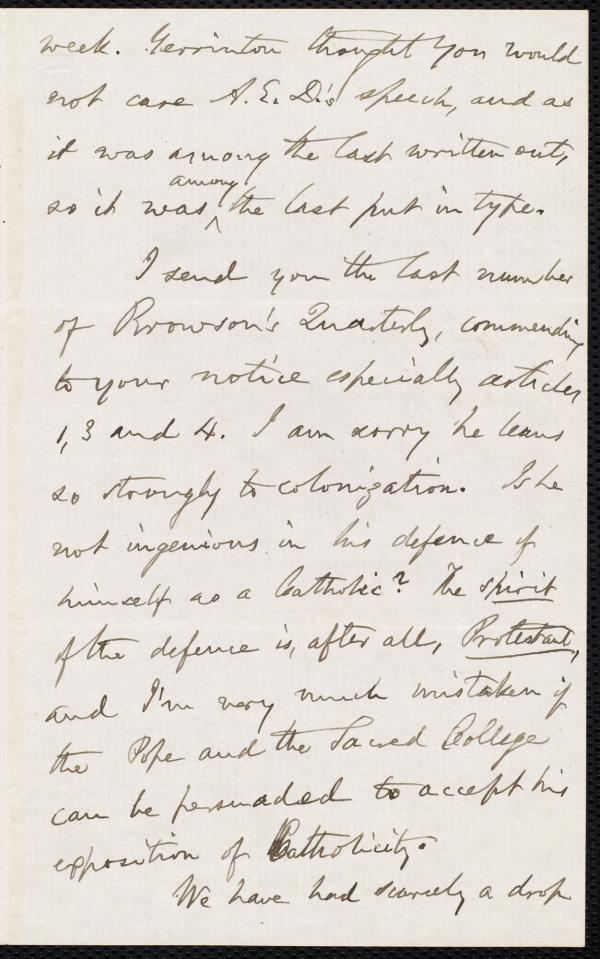 week. Yerrinton thought you would
not care A. E. D's speech, and as
it was among the last written out,
so it was among the last put in type.
I send you the last number
of Brownson's Quarterly, commending
to your notice especially articles
1, 3 and 4. I am sorry he leans
so strongly to colonization. Is he
not ingenious in his defence of
himself as a Catholic? The spirit
of the defence is, after all, Protestant,
and I'm very much mistaken if
the Pope and the Sacred College
can be persuaded to accept his
exposition of Catholicity.
We have had scarcely a drop